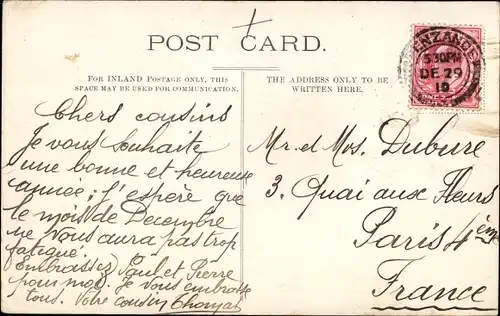 POST CARD.
FOR INLAND POSTAGE ONLY, THIS
SPACE MAY BE USED FOR COMMUNICATION.
THE ADDRESS ONLY TO BE
WRITTEN HERE.
ENZANCE
5.30PM
DE 29
10
Chers cousins
Je vous souhaite
une bonne et heureuse
année; j'espère que
le mois de Decembre
ne vous aura pas trop
fatigué.
Embrassez Paul et Pierre
pour moi. Je vous embrasse
tous. Votre cousin
Mr. et Mos. Dubure
3. Quai aux Fleurs
Paris 4ème
France